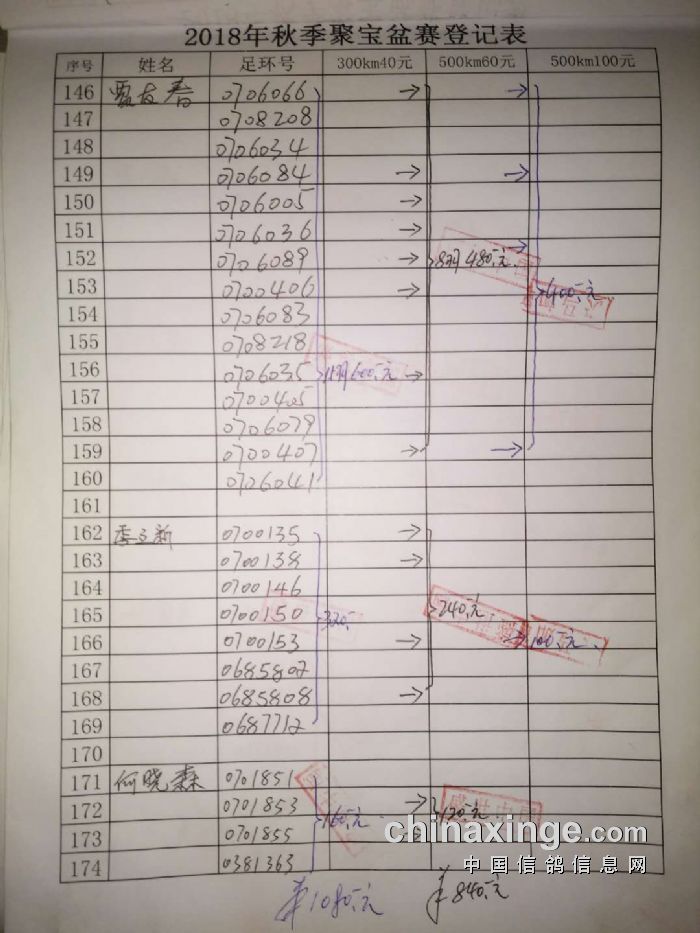 2018年秋季聚宝盆赛登记表
序号 姓名 足环号 300km40元 500km60元 500km100元
146 贾友春 0706066 → →
147 0708208
148 0706034
149 0706084 → →
150 0706005 →
151 0706036 → →
152 0706089 → 480元
153 0700406 → 400元
154 0706083
155 0708218
156 0706035 600元 →
157 0700405
158 0706079
159 0700407 → →
160 0706041
161
162 季立新 0700135 →
163 0700138 →
164 0700146
165 0700150 320 240元
166 0700153 → → 100元
167 0685802
168 0685808 →
169 0687712
170
171 何晓森 0701851
172 0701853 160元 → 120元
173 0701855 →
174 0381363
1080元 840元
chinaxinge.com
中国信鸽信息网